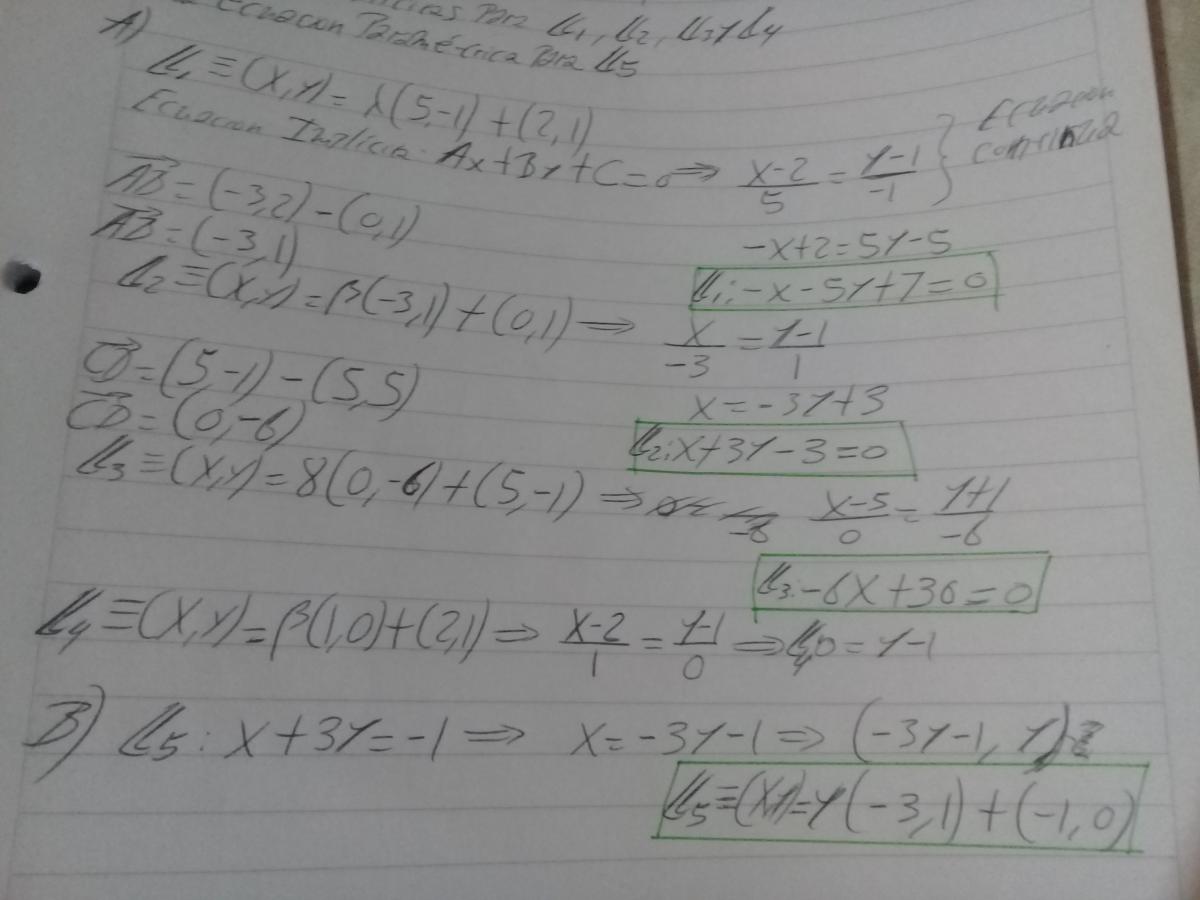 Para L₁, L₂, L₃ y L₄
A) Ecuacion Paramétrica Para L₅
L₁ ≡ (X,Y) = λ(5,-1) + (2,1)
Ecuacion Implicia: Ax+By+C=0 ⇒ x-2/5 = y-1/-1 } Ecuacion
AB = (-3,2) - (0,1)
-x+2=5y-5
AB = (-3,1)
L₁: -x-5y+7=0
L₂ ≡ (X,Y) = β(-3,1) + (0,1) ⇒ x/-3 = y-1/1
CD = (5,-1) - (5,5)
x = -3y+3
CD = (0,-6)
L₂: x+3y-3=0
L₃ ≡ (X,Y) = 8(0,-6) + (5,-1) ⇒ x-5/0 = y+1/-6
L₃: -6x+30=0
L₄ ≡ (X,Y) = β(1,0) + (2,1) ⇒ x-2/1 = y-1/0 ⇒ L₄ 0 = y-1
B) L₅: x+3y=-1 ⇒ x=-3y-1 ⇒ (-3y-1, y)
L₅ ≡ (X,Y) = y(-3,1) + (-1,0)